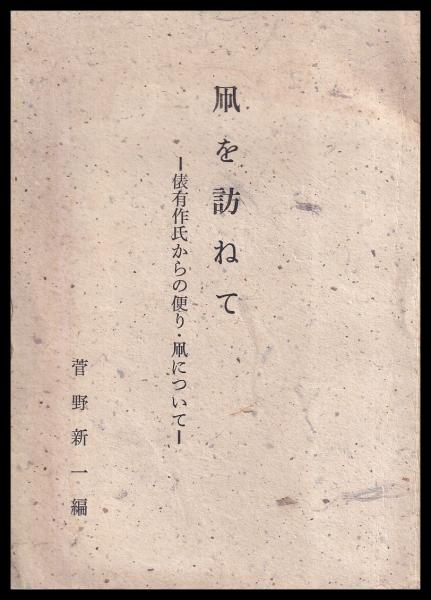 凧を訪ねて
ー俵有作氏からの便り・凧についてー
菅野新一編